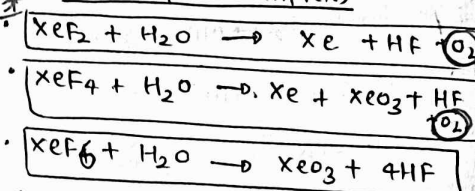 • XeF₂ + H₂O → Xe + HF + O₂
• XeF₄ + H₂O → Xe + XeO₃ + HF
+ O₂
• XeF6 + H₂O → XeO₃ + 4HF